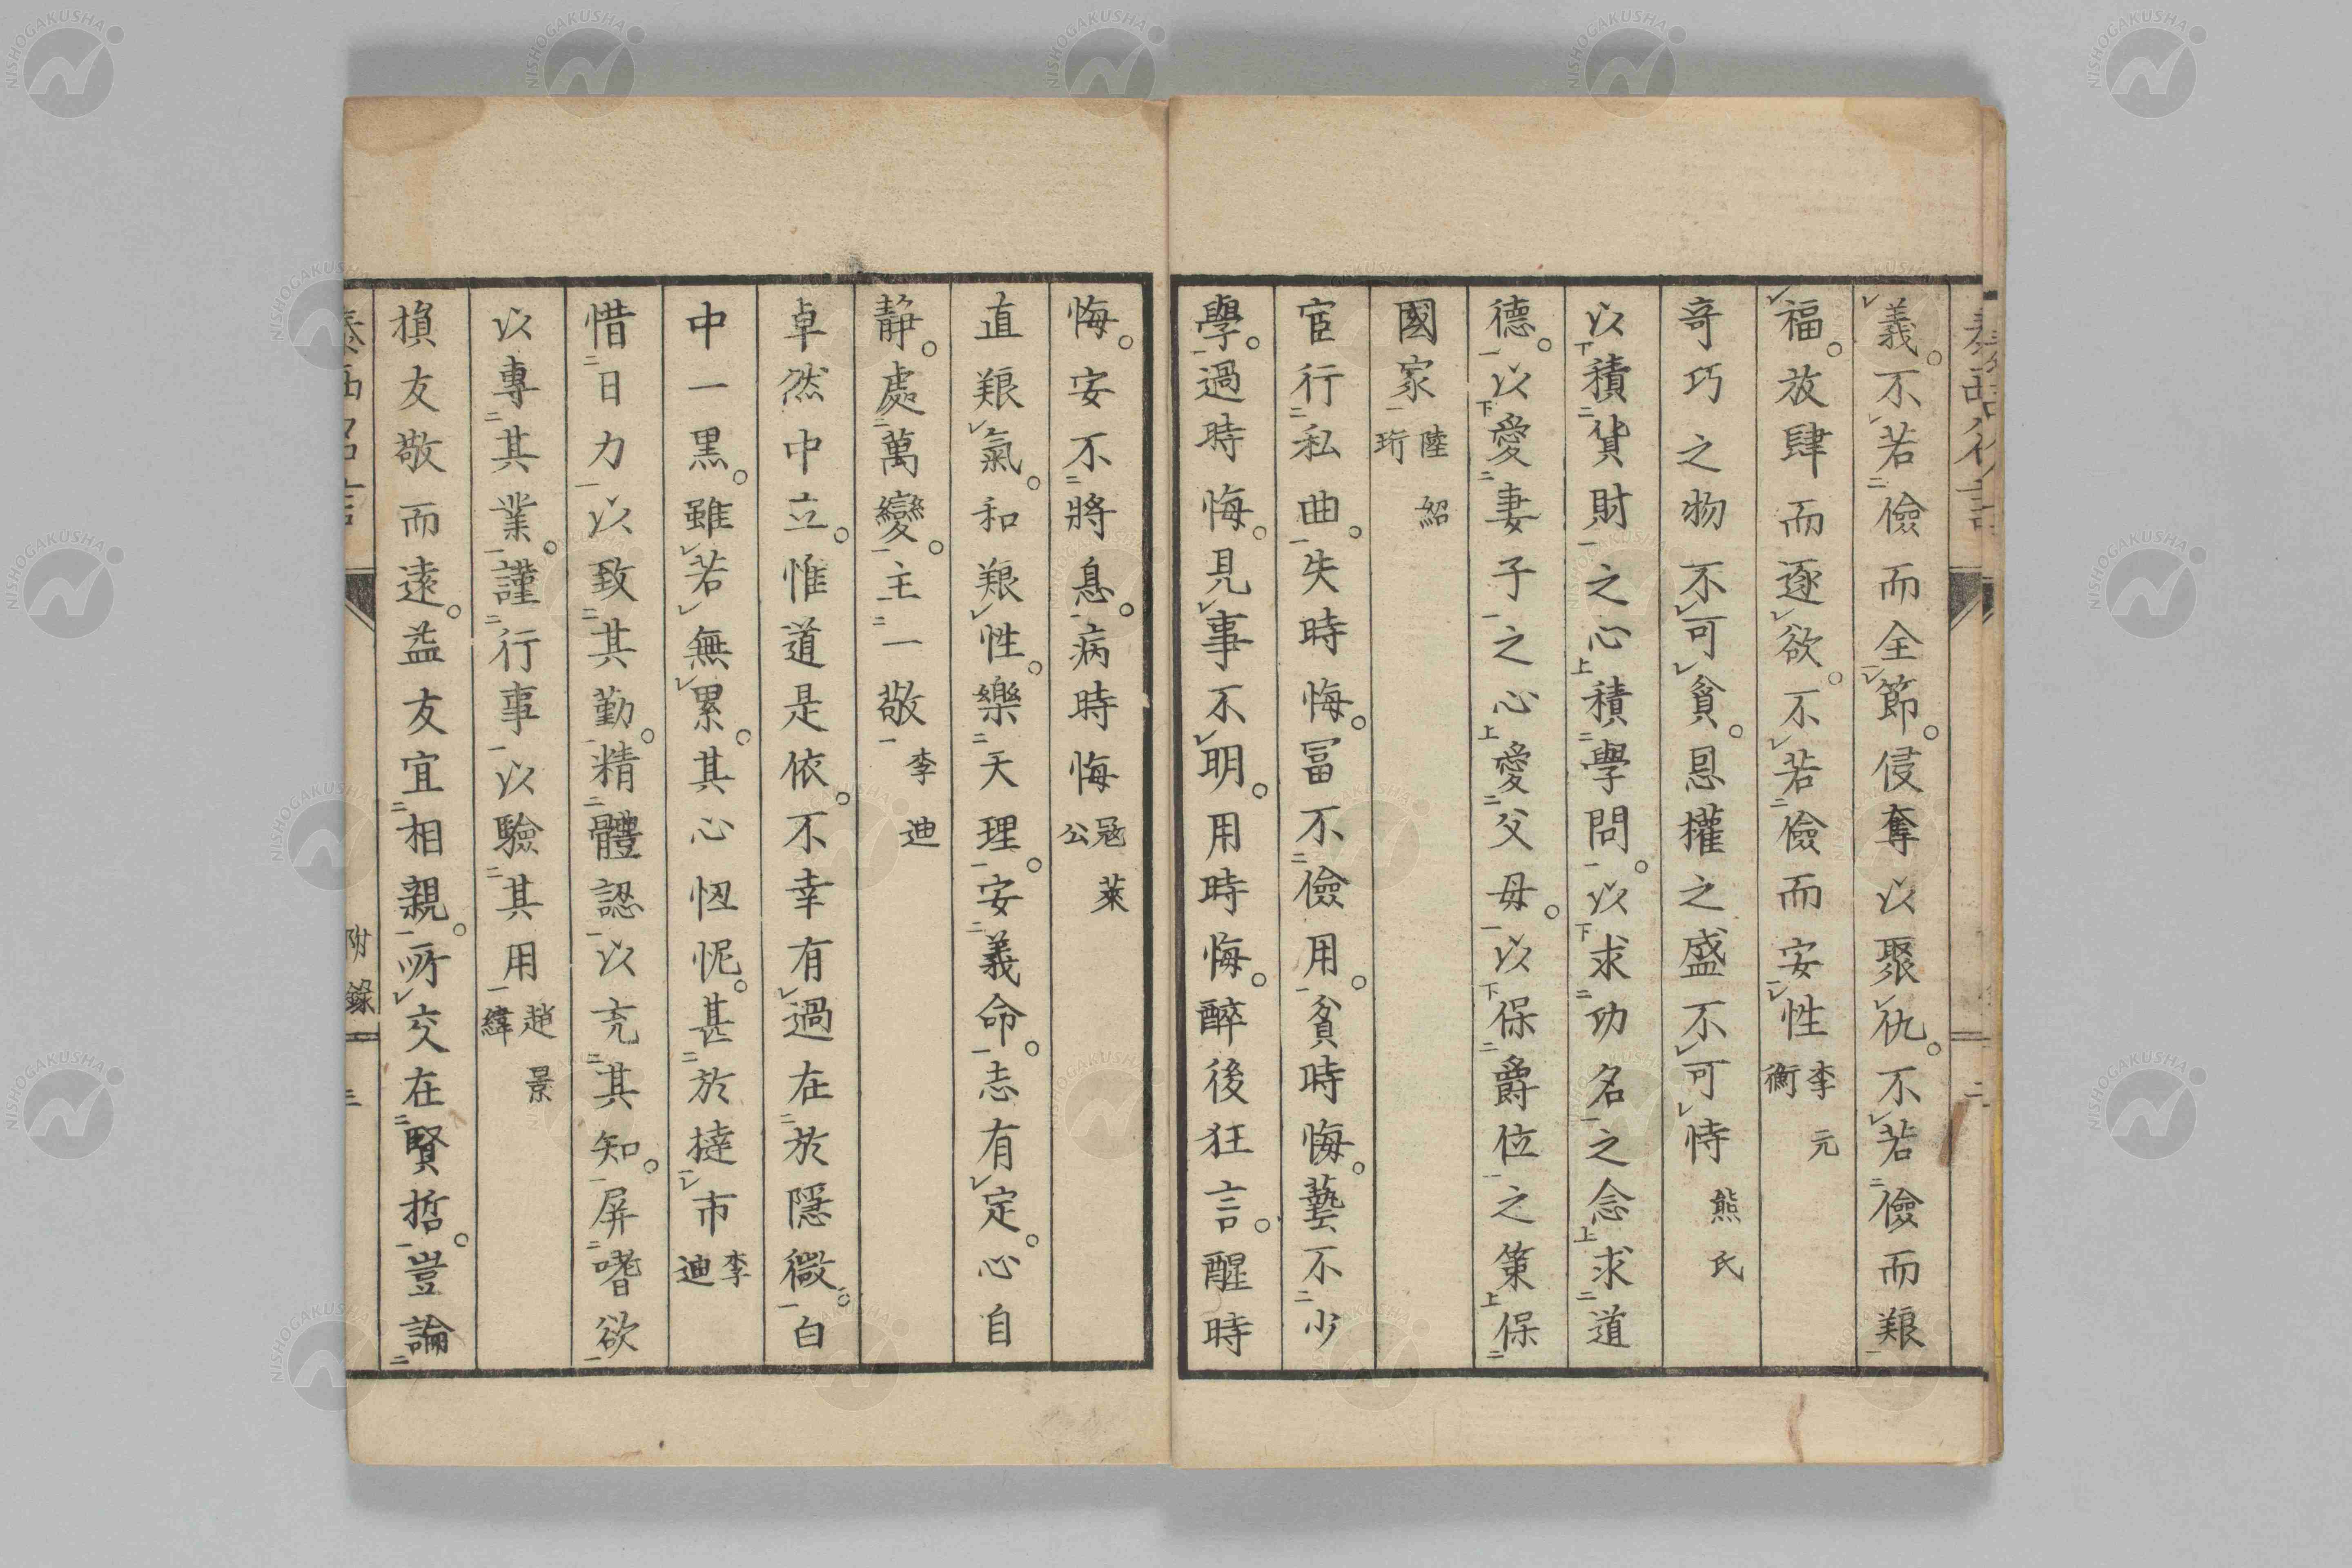 義。不若儉而全節。侵奪以聚仇。不若儉而養
福。放肆而逐欲。不若儉而安性 李元衡
奇巧之物不可貪。恩權之盛不可恃 熊氏
以積貨財之心積學問。以求功名之念求道
德。以愛妻子之心愛父母。以保爵位之策保
國家 陸紹珩
官行私曲。失時悔。冨不儉用。貧時悔。藝不少
學。過時悔。見事不明。用時悔。醉後狂言。醒時
悔。安不將息。病時悔 冦萊公
直養氣。和養性。樂天理。安義命。志有定。心自
靜。處萬變。主一敬 李迪
卓然中立。惟道是依。不幸有過在於隱微。白
中一黒。雖若無累。其心忸怩。甚於撻市 李迪
惜日力以致其勤。精體認以充其知。屏嗜欲
以專其業。謹行事以驗其用 趙景緯
損友敬而遠。益友宜相親。所交在賢哲。豈論
附錄 三